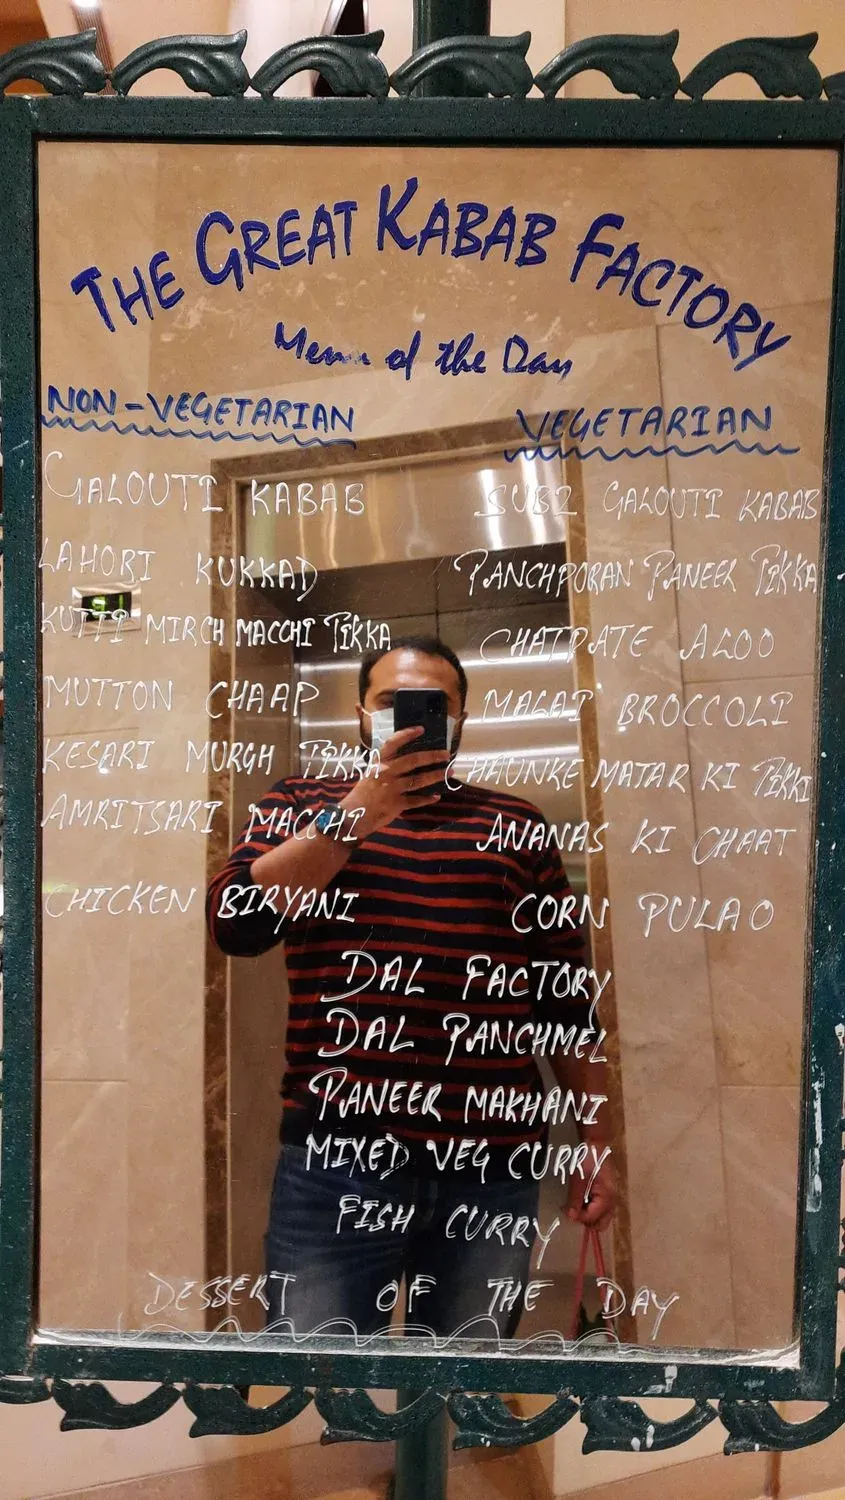 THE GREAT KABAB FACTORY
Menu of the Day
NON-VEGETARIAN
GALOUTI KABAB
LAHORI KUKKAD
KUTTI MIRCH MACCHI TIKKA
MUTTON CHAAP
KESARI MURGH TIKKA
AMRITSARI MACCHI
CHICKEN BIRYANI
VEGETARIAN
SUBZ GALOUTI KABAB
PANCHPORAN PANEER TIKKA
CHATPATE ALOO
MALAI BROCCOLI
CHAUNKE MATAR KI TIKKI
ANANAS KI CHAAT
CORN PULAO
DAL FACTORY
DAL PANCHMEL
PANEER MAKHANI
MIXED VEG CURRY
FISH CURRY
DESSERT OF THE DAY